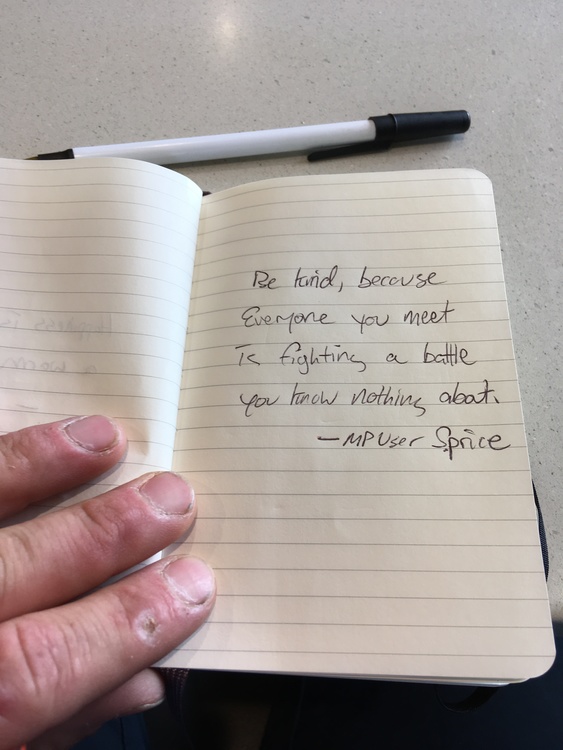 Be kind, because
Everyone you meet
is fighting a battle
you know nothing about.
—MPUser Sprice